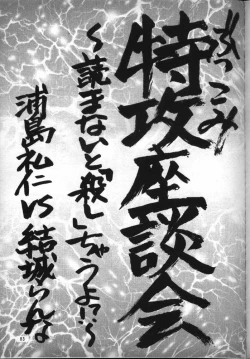 ぶっこみ
特攻座談会
～読まないと「殺し」ちゃうよ!?～
浦島礼仁VS結城らんな